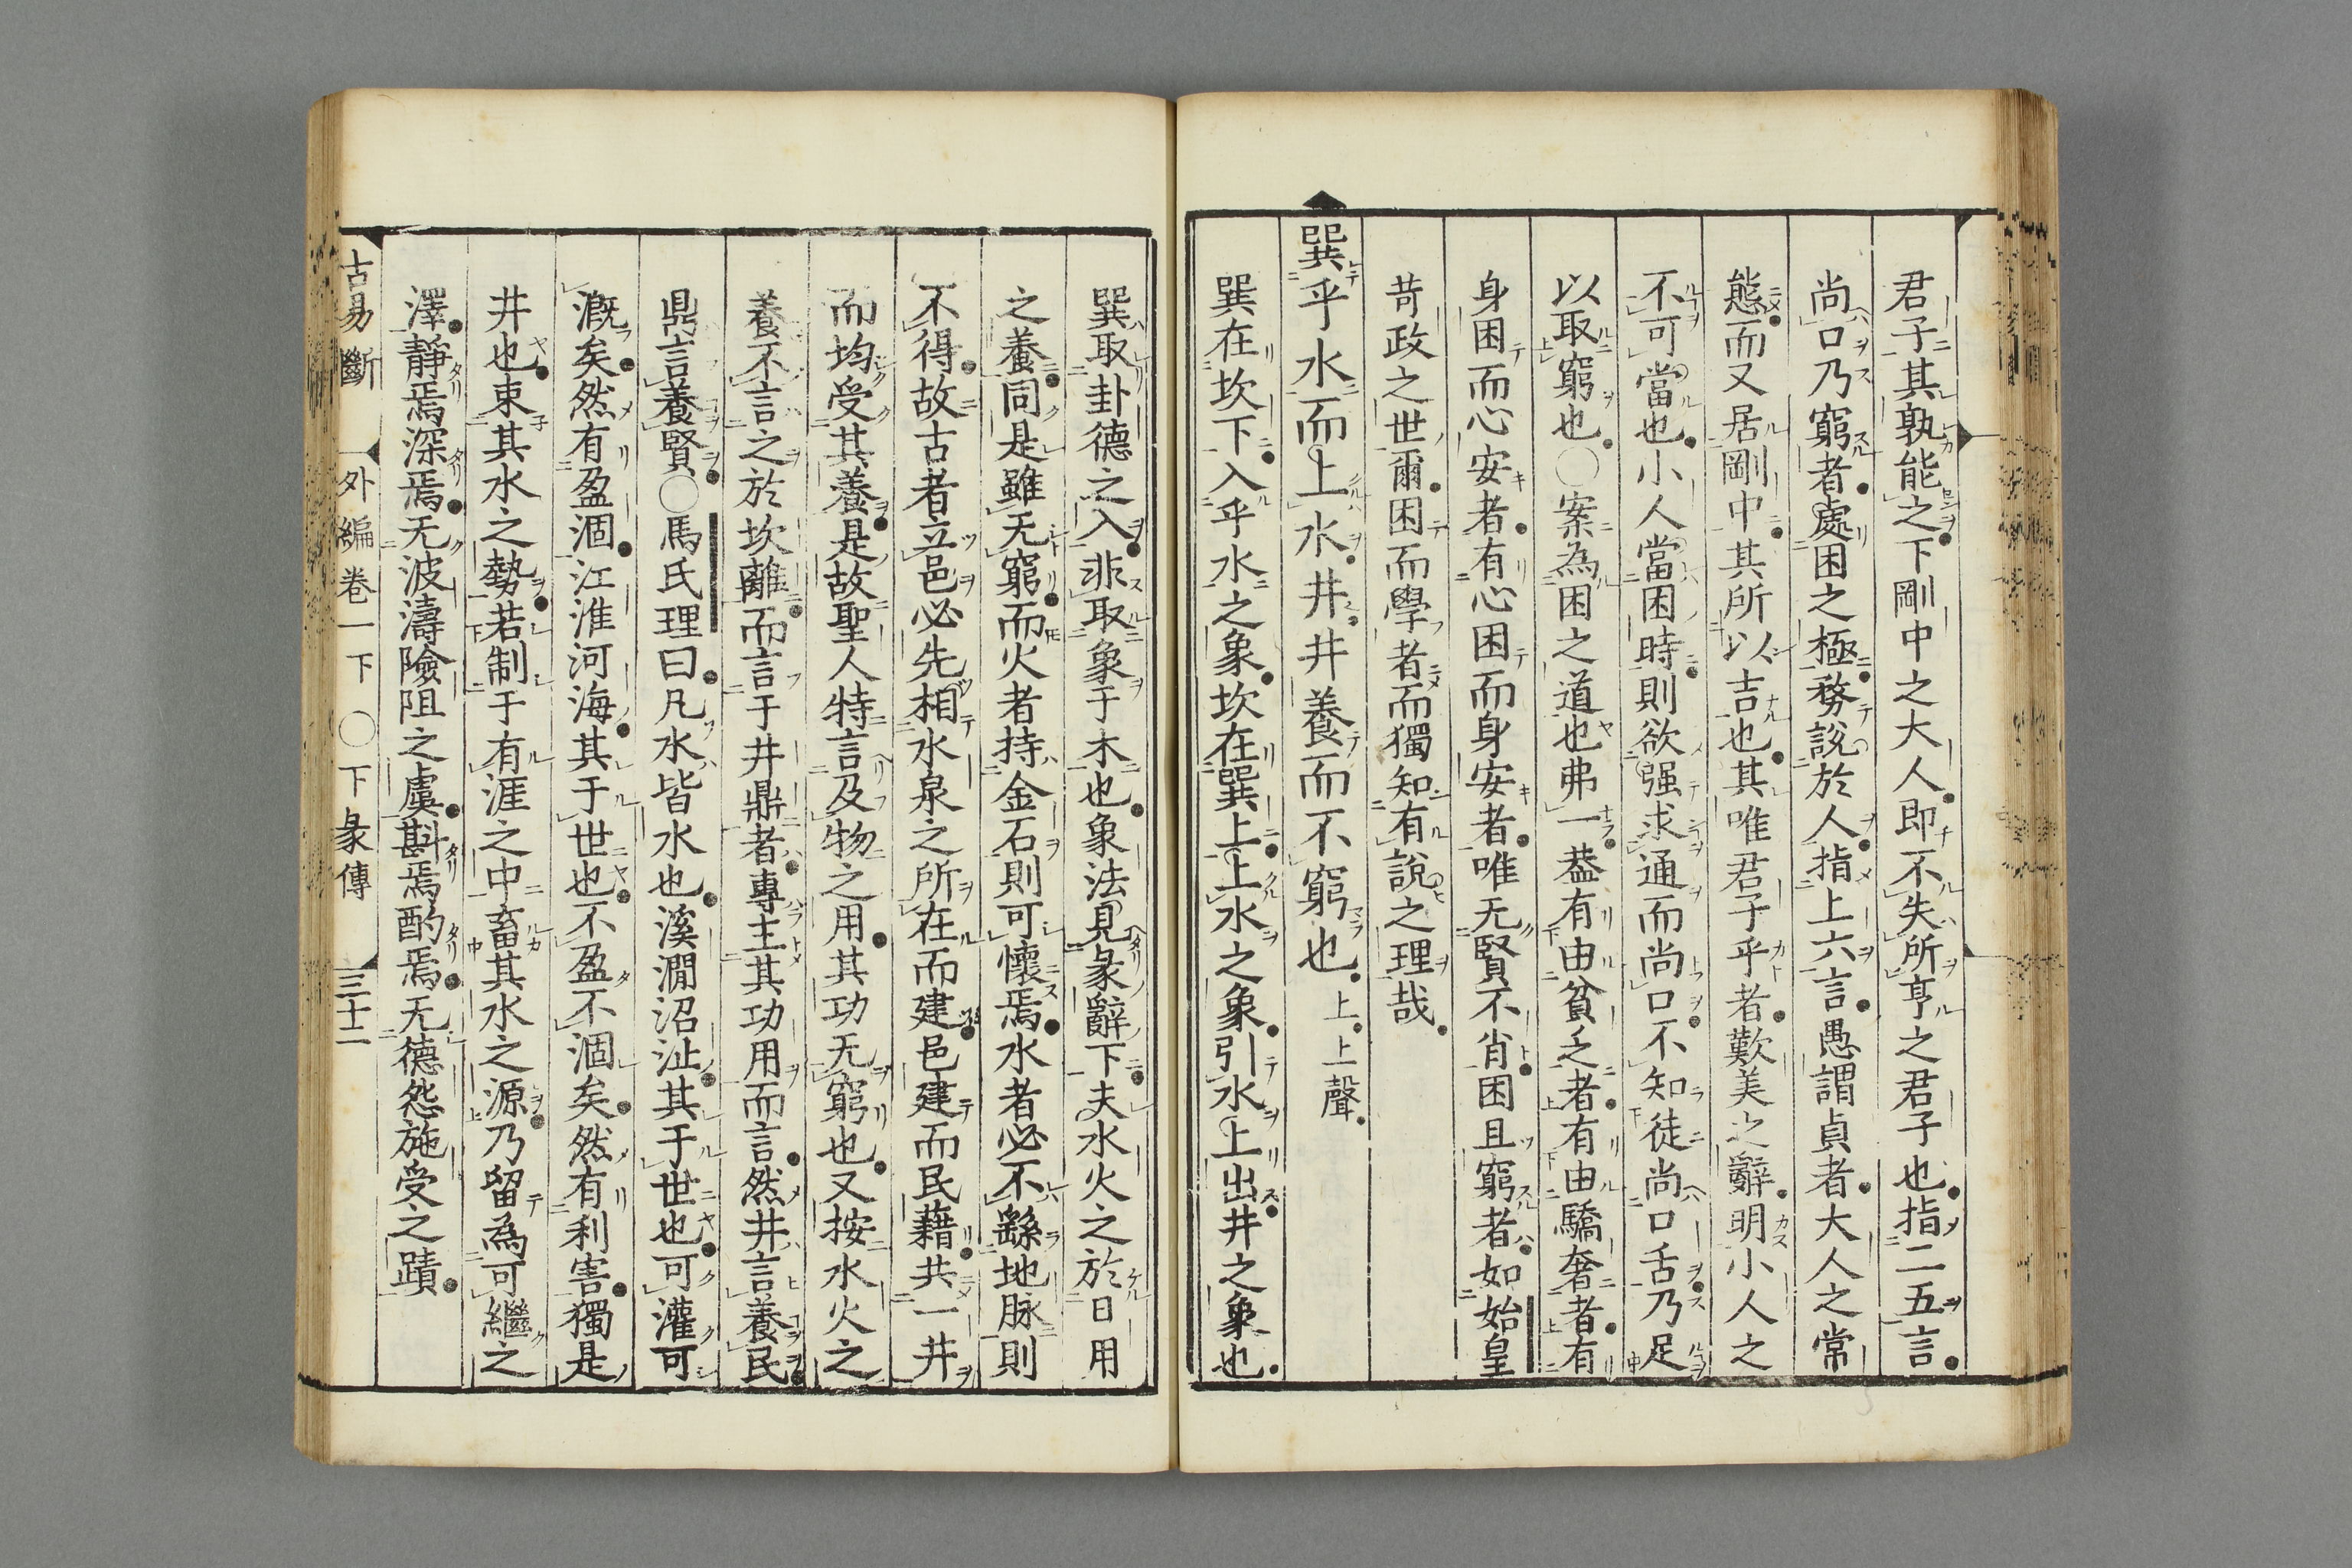 君子其孰能之下剛中之大人即不失所亨之君子也指二五言
尚口乃窮者處困之極務說於人指上六言愚謂貞者大人之常
態而又居剛中其所以吉也其唯君子乎者歎美之辭明小人之
不可當也小人當困時則欲强求通而尚口不知徒尚口舌乃足
以取窮也○案為困之道也弗一葢有由貧乏者有由驕奢者有
身困而心安者有心困而身安者唯无賢不肖困且窮者如始皇
苛政之世爾困而學者而獨知有說之理哉
巽乎水而上水井井養而不窮也上上聲
巽在坎下入乎水之象坎在巽上上水之象引水上出井之象也
巽取卦德之入非取象于木也象法見彖辭下夫水火之於日用
之養同是雖无窮而火者持金石則可懷焉水者必不繇地脉則
不得故古者立邑必先相水泉之所在而建邑建而民藉共一井
而均受其養是故聖人特言及物之用其功无窮也又按水火之
養不言之於坎離而言于井鼎者專主其功用而言然井言養民
鼎言養賢○馬氏理曰凡水皆水也溪澗沼沚其于世也可灌可
溉矣然有盈涸江淮河海其于世也不盈不涸矣然有利害獨是
井也束其水之勢若制于有涯之中畜其水之源乃留為可繼之
澤靜焉深焉无波濤險阻之虞斟焉酌焉无德怨施受之蹟
古易斷 外編卷一下 ○下彖傳 三十二